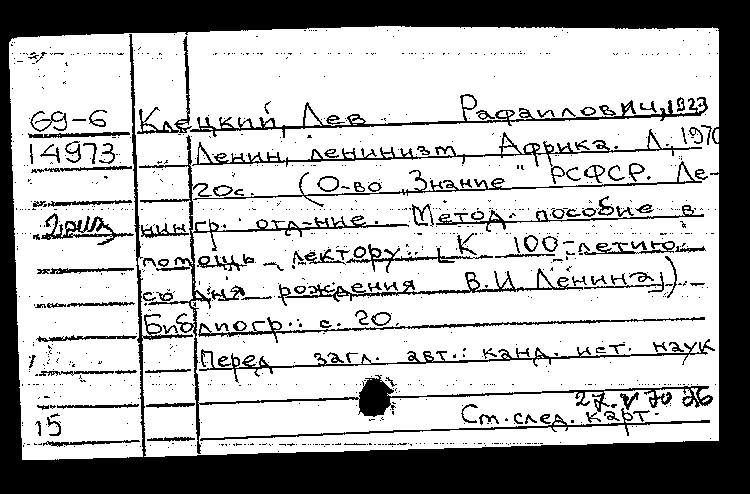 69-6 Клецкий, Лев Рафаилович, 1923
14973 Ленин, ленинизм, Африка. Л., 1970
20с. (О-во „Знание" РСФСР. Ле-
2 нингр. отд-ние. Метод. пособие в
помощь лектору: [К 100-летию
со дня рождения В.И. Ленина]).
Библиогр.: с. 20.
Перед загл. авт.: канд. ист. наук
27. V 70
15 См. след. карт.